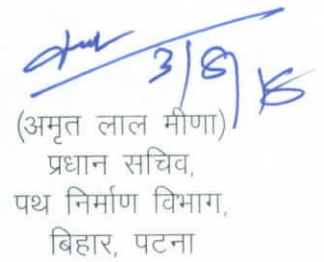 3/8/18
(अमृत लाल मीणा)
प्रधान सचिव,
पथ निर्माण विभाग,
बिहार, पटना